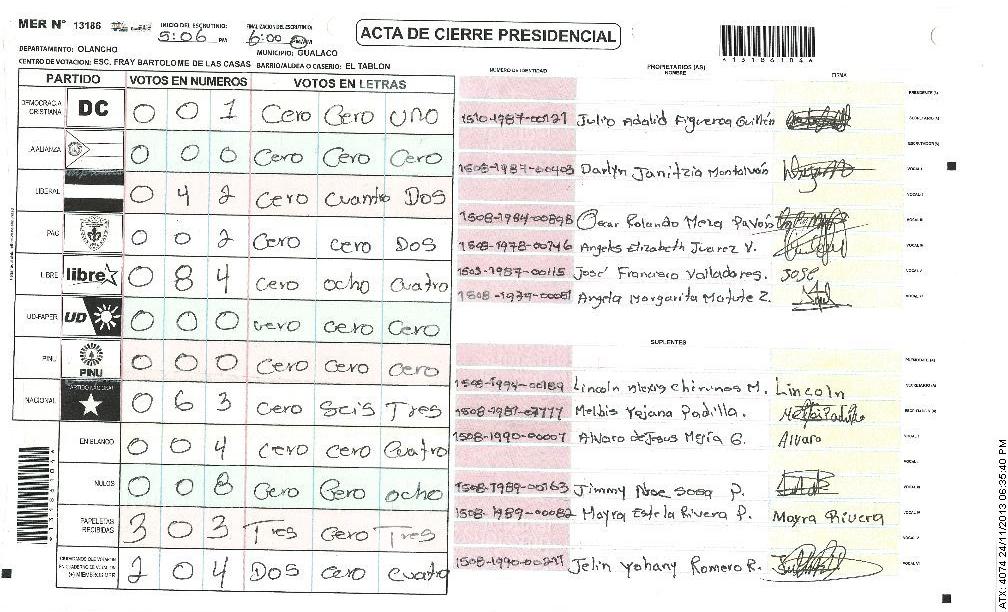 MER N° 13186
INICIO DEL ESCRUTINIO: 5:06 PM
FINALIZACION DEL ESCRUTINIO: 6:00 PM
ACTA DE CIERRE PRESIDENCIAL
DEPARTAMENTO: OLANCHO
MUNICIPIO: GUALACO
CENTRO DE VOTACION: ESC. FRAY BARTOLOME DE LAS CASAS BARRIO/ALDEA O CASERIO: EL TABLON
PARTIDO VOTOS EN NUMEROS VOTOS EN LETRAS
DEMOCRACIA CRISTIANA DC 0 0 1 Cero Cero uno
LA ALIANZA 0 0 0 Cero Cero Cero
LIBERAL 0 4 2 Cero cuantro Dos
PAC 0 0 2 Cero cero Dos
LIBRE libre 0 8 4 cero ocho cuatro
UD-FAPER UD 0 0 0 cero cero Cero
PINU PINU 0 0 0 Cero Cero cero
NACIONAL PARTIDO NACIONAL 0 6 3 cero Seis Tres
EN BLANCO 0 0 4 cero cero Cuatro
NULOS 0 0 8 Cero Cero ocho
PAPELETAS RECIBIDAS 3 0 3 Tres Cero Tres
CIUDADANOS QUE VOTARON EN CUADERNO DE VOTACION (+) MIEMBROS MER 2 0 4 DOS cero cuatro
NUMERO DE IDENTIDAD PROPIETARIOS (AS) NOMBRE FIRMA
PRESIDENTE (A)
1510-1987-00121 Julio Adalid Figueroa Guillén SECRETARIO (A)
ESCRUTADOR (A)
1508-1987-00403 Darlyn Janitzia Montalván VOCAL I
VOCAL II
1508-1984-00898 Oscar Rolando Meza Pavón VOCAL III
1508-1978-00746 Angeles Elizabeth Juarez V. VOCAL IV
1503-1987-00115 José Francisco Valladares. JOSE VOCAL V
Angela Margarita Matute Z. VOCAL VI
SUPLENTES
PRESIDENTE (A)
1508-1994-00189 Lincoln Alexis Chirunos M. Lincoln SECRETARIO (A)
Melbis Yojana Padilla. ESCRUTADOR (A)
1508-1990-00007 Alvaro de Jesus Mejía G. Alvaro VOCAL I
VOCAL II
1508-1989-00163 Jimmy Noe Sosa P. VOCAL III
1508-1989-00082 Mayra Estela Rivera P. Mayra Rivera VOCAL IV
VOCAL V
Jelin Yohany Romero R. VOCAL VI
ATX: 4074 24/11/2013 06:35:40 PM